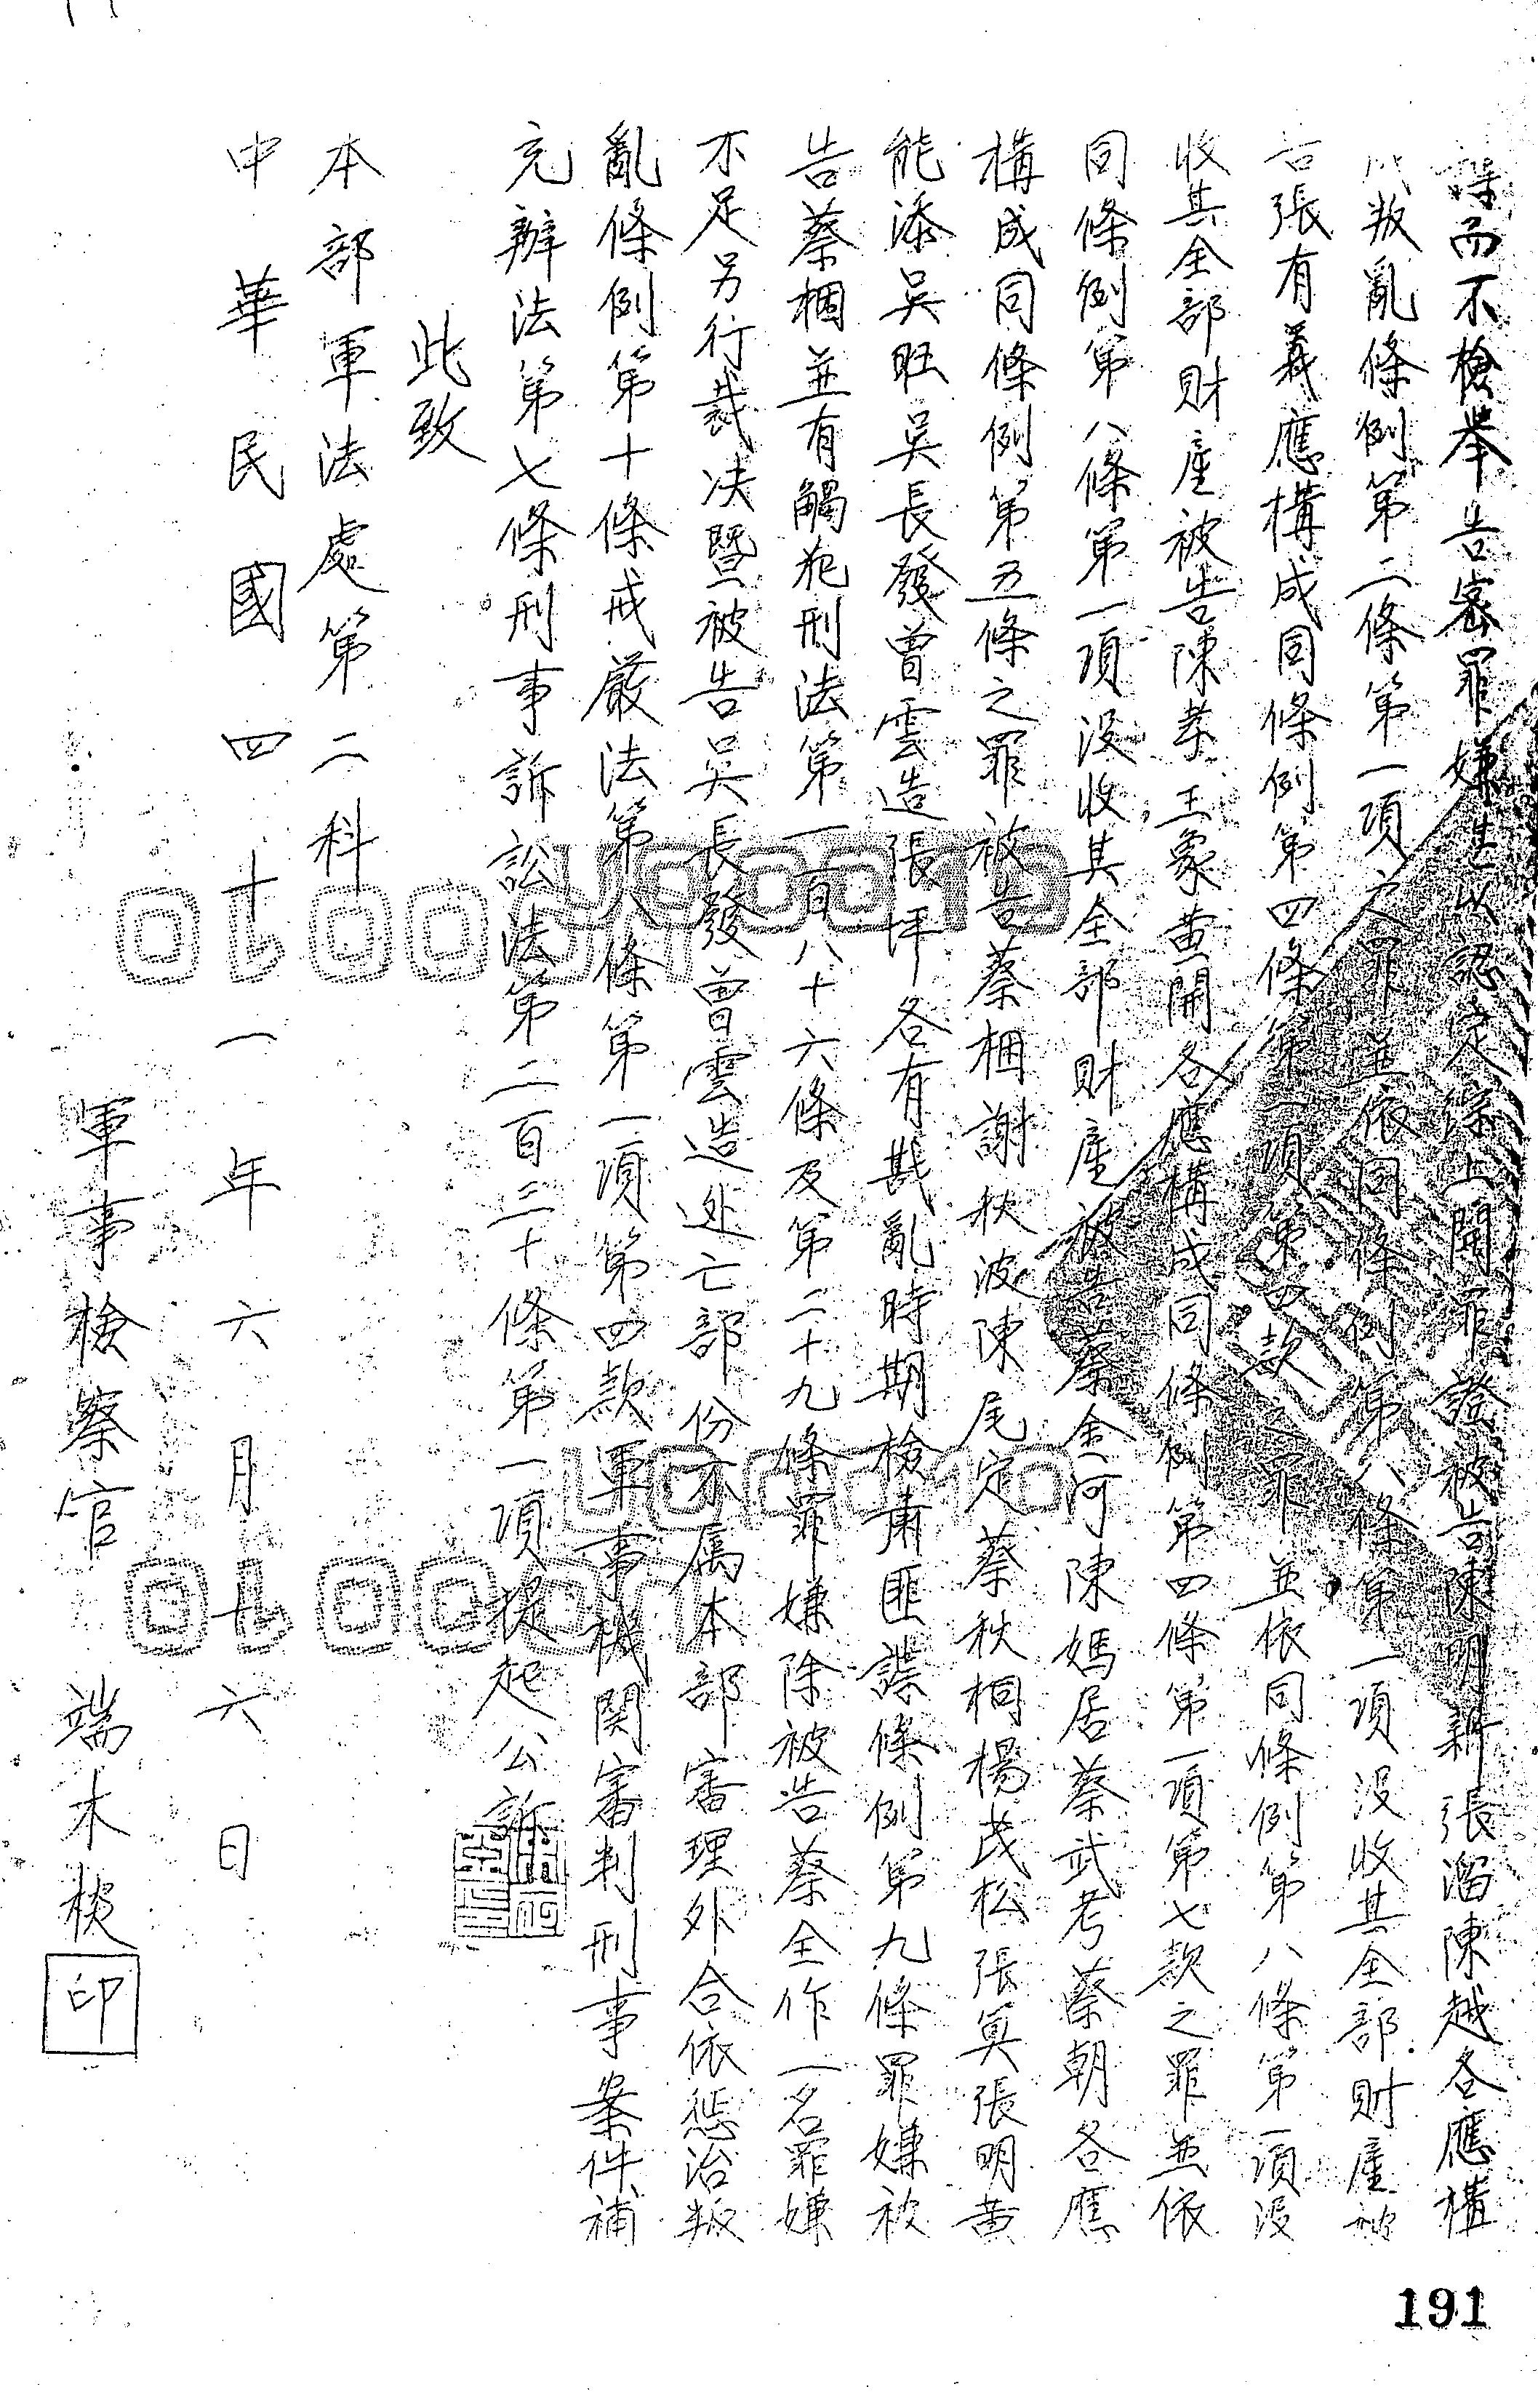 諜而不檢舉告密罪嫌甚以認定綜上開罪證被告陳明新張溜陳越各應構
成叛亂條例第二條第一項之罪並依同條例第八條第一項沒收其全部財產被
告張有義應構成同條例第四條第一項第四款之罪並依同條例第八條第一項沒
收其全部財產被告陳孝王象黃開各應構成同條例第四條第一項第七款之罪並依
同條例第八條第一項沒收其全部財產被告蔡金河陳媽居蔡武考蔡朝各應
構成同條例第五條之罪被告蔡梱謝秋波陳尾定蔡秋桐楊茂松張㒲張明黃
能添吳旺吳長發曾雲造張坪各有戡亂時期檢肅匪諜條例第九條罪嫌被
告蔡梱並有觸犯刑法第一百八十六條及第二十九條罪嫌除被告蔡全作一名罪嫌
不足另行裁决暨被告吳長發曾雲造逃亡部份不屬本部審理外合依懲治叛
亂條例第十條戒嚴法第八條第一項第四款軍事機関審判刑事案件補
充辦法第七條刑事訴訟法第二百三十條第一項提起公訴
此致
本部軍法處第二科
中華民國四十一年六月十六日
軍事檢察官 端木棪 印
191